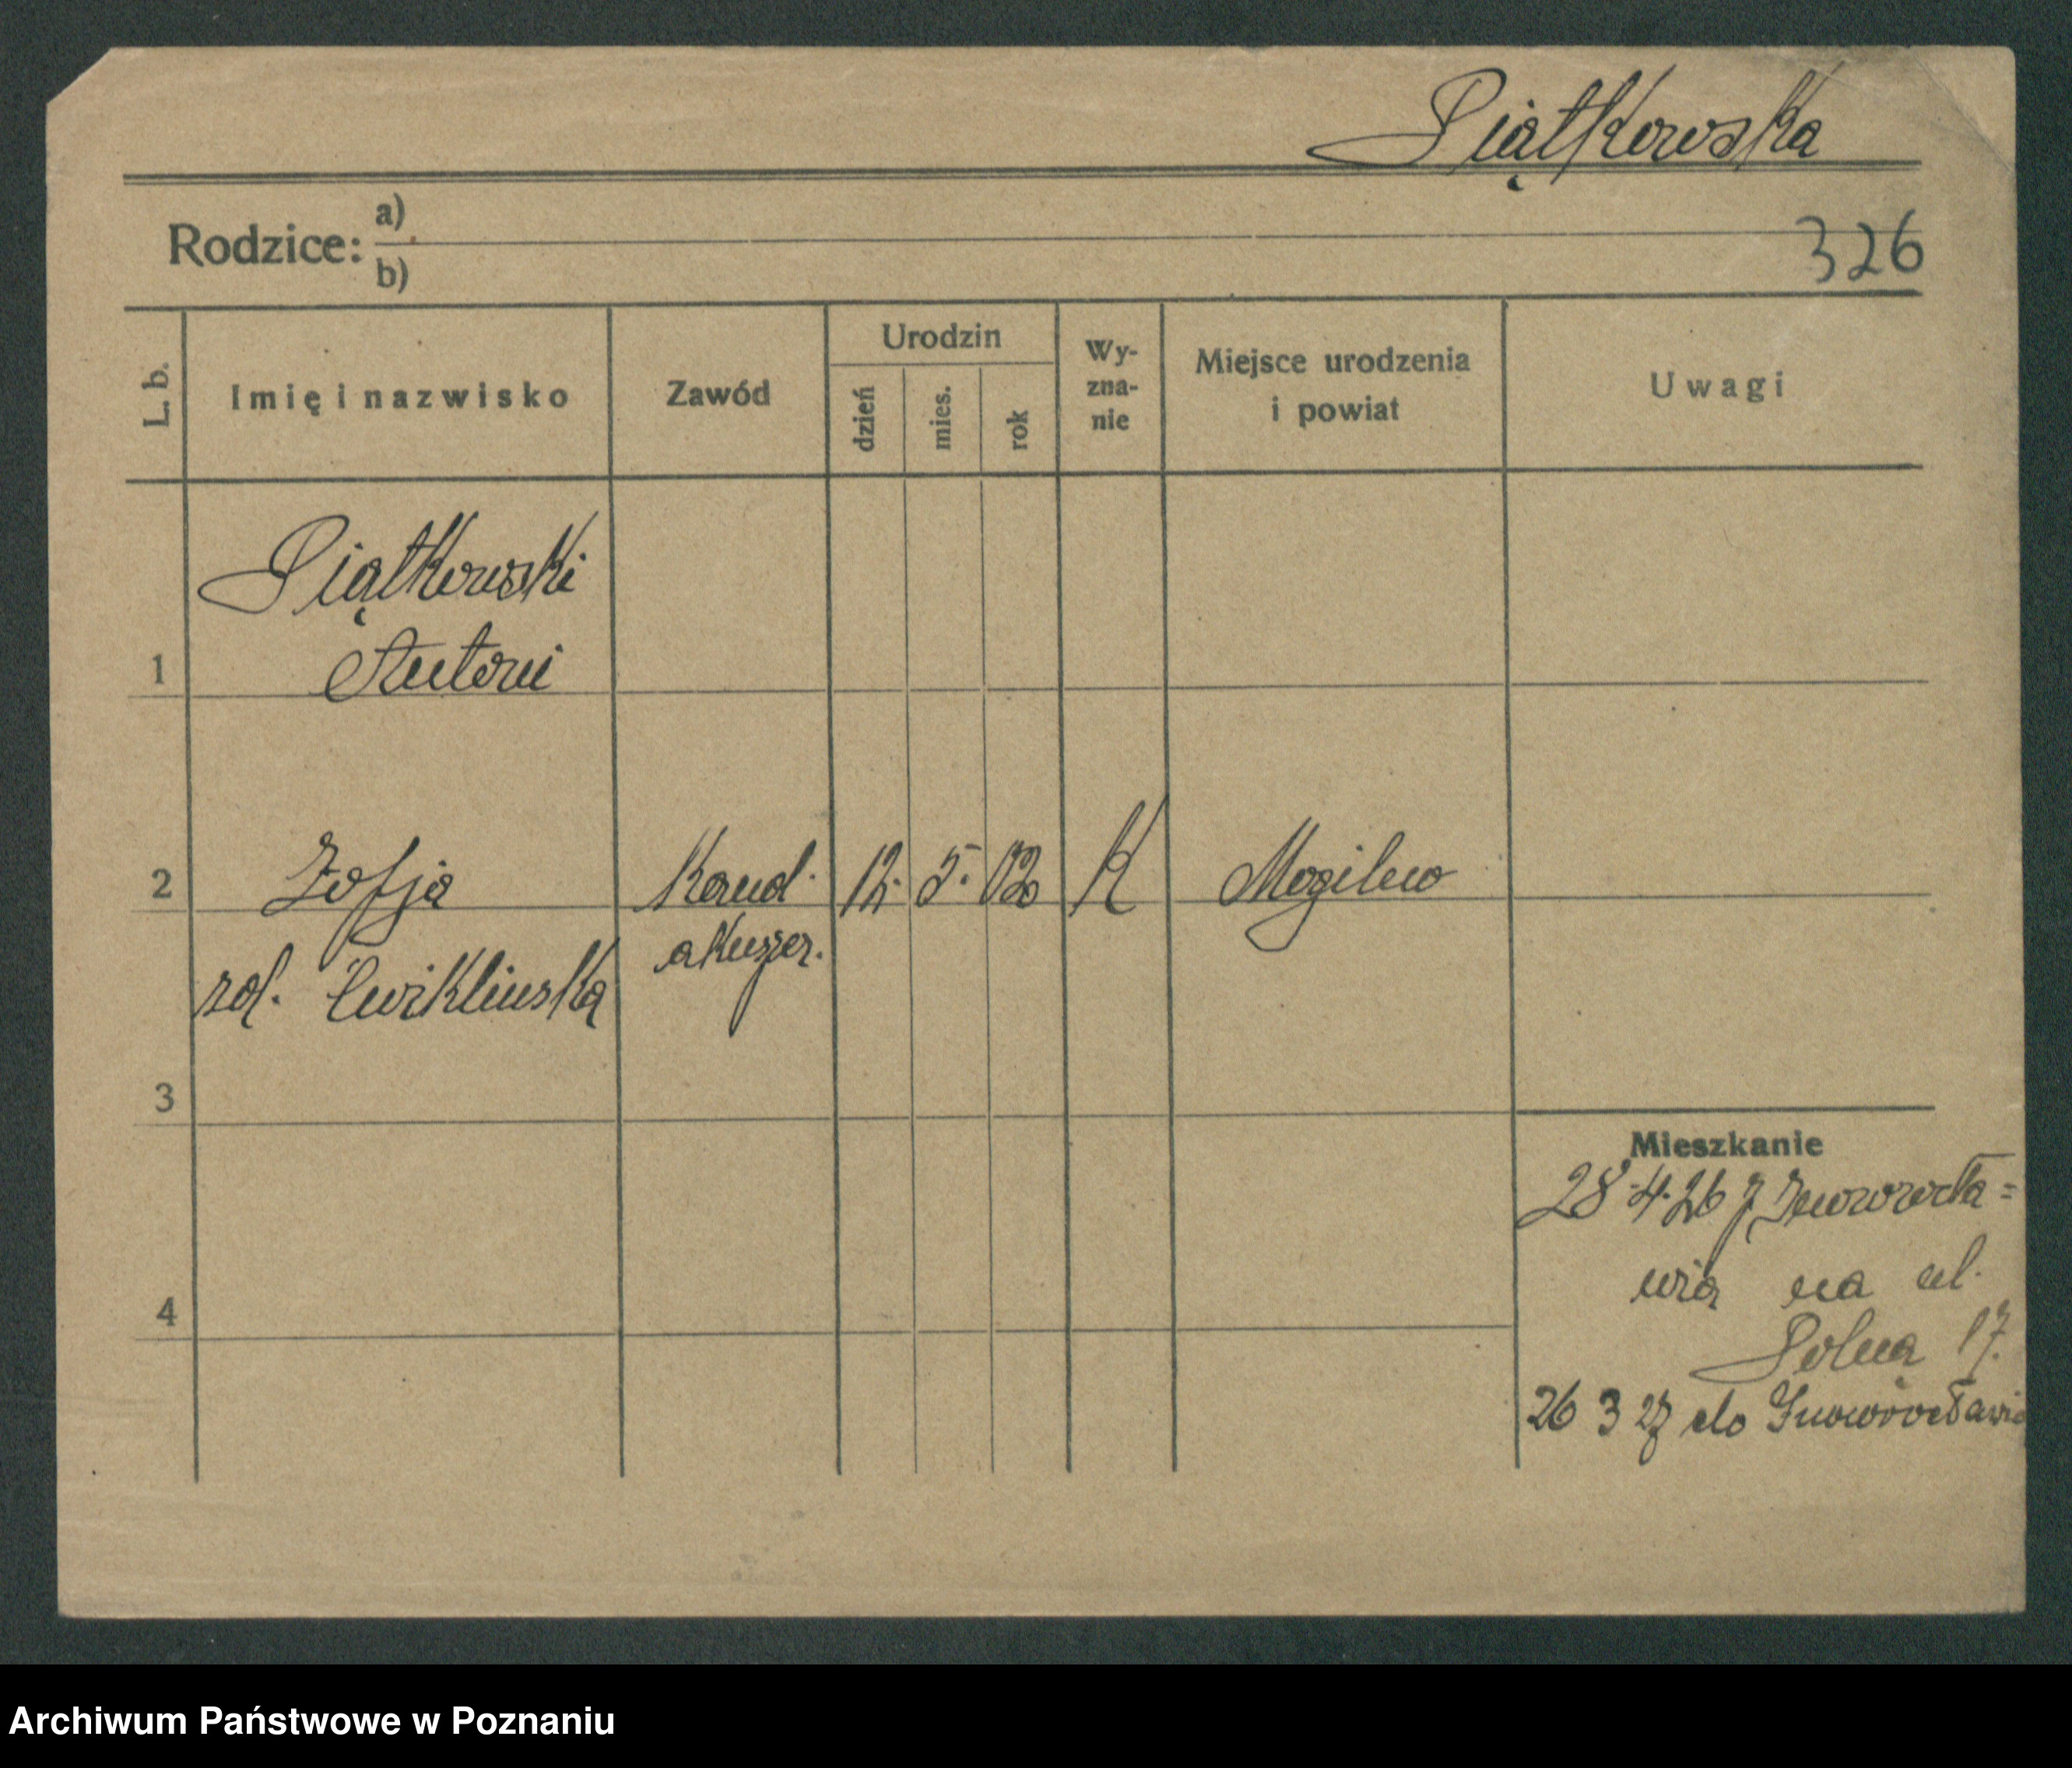 Piątkowska
Rodzice: a)
b)
326
L. b.
Imię i nazwisko
Zawód
Urodzin
dzień
mies.
rok
Wy-
zna-
nie
Miejsce urodzenia
i powiat
Uwagi
Piątkowski
1 Antoni
2 Zofja Kand. 12. 5. K Mogilno
akuszer.
Ćwiklińska
3
Mieszkanie
28.4.26 z Inowrocła=
wia na ul.
4
Polna 17.
26 3 27 do Inowrocławia
Archiwum Państwowe w Poznaniu